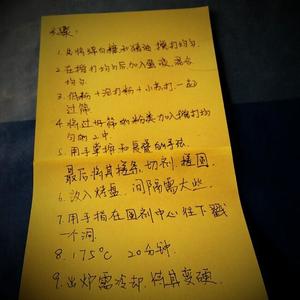 步骤:
1. 先将绵白糖和猪油搅打均匀.
2. 在搅打均匀后,加入蛋液,混合
均匀.
3. 低粉+泡打粉+小苏打一起
过筛
4. 将过好筛的粉类加入搅打均
匀的2中.
5. 用手掌揉和
最后将其搓条,切剂,搓圆.
6. 放入烤盘,间隔需大些.
7. 用手指在圆剂中心往下戳
一个洞.
8. 175℃ 20分钟.
9. 出炉需冷却,待其变硬.